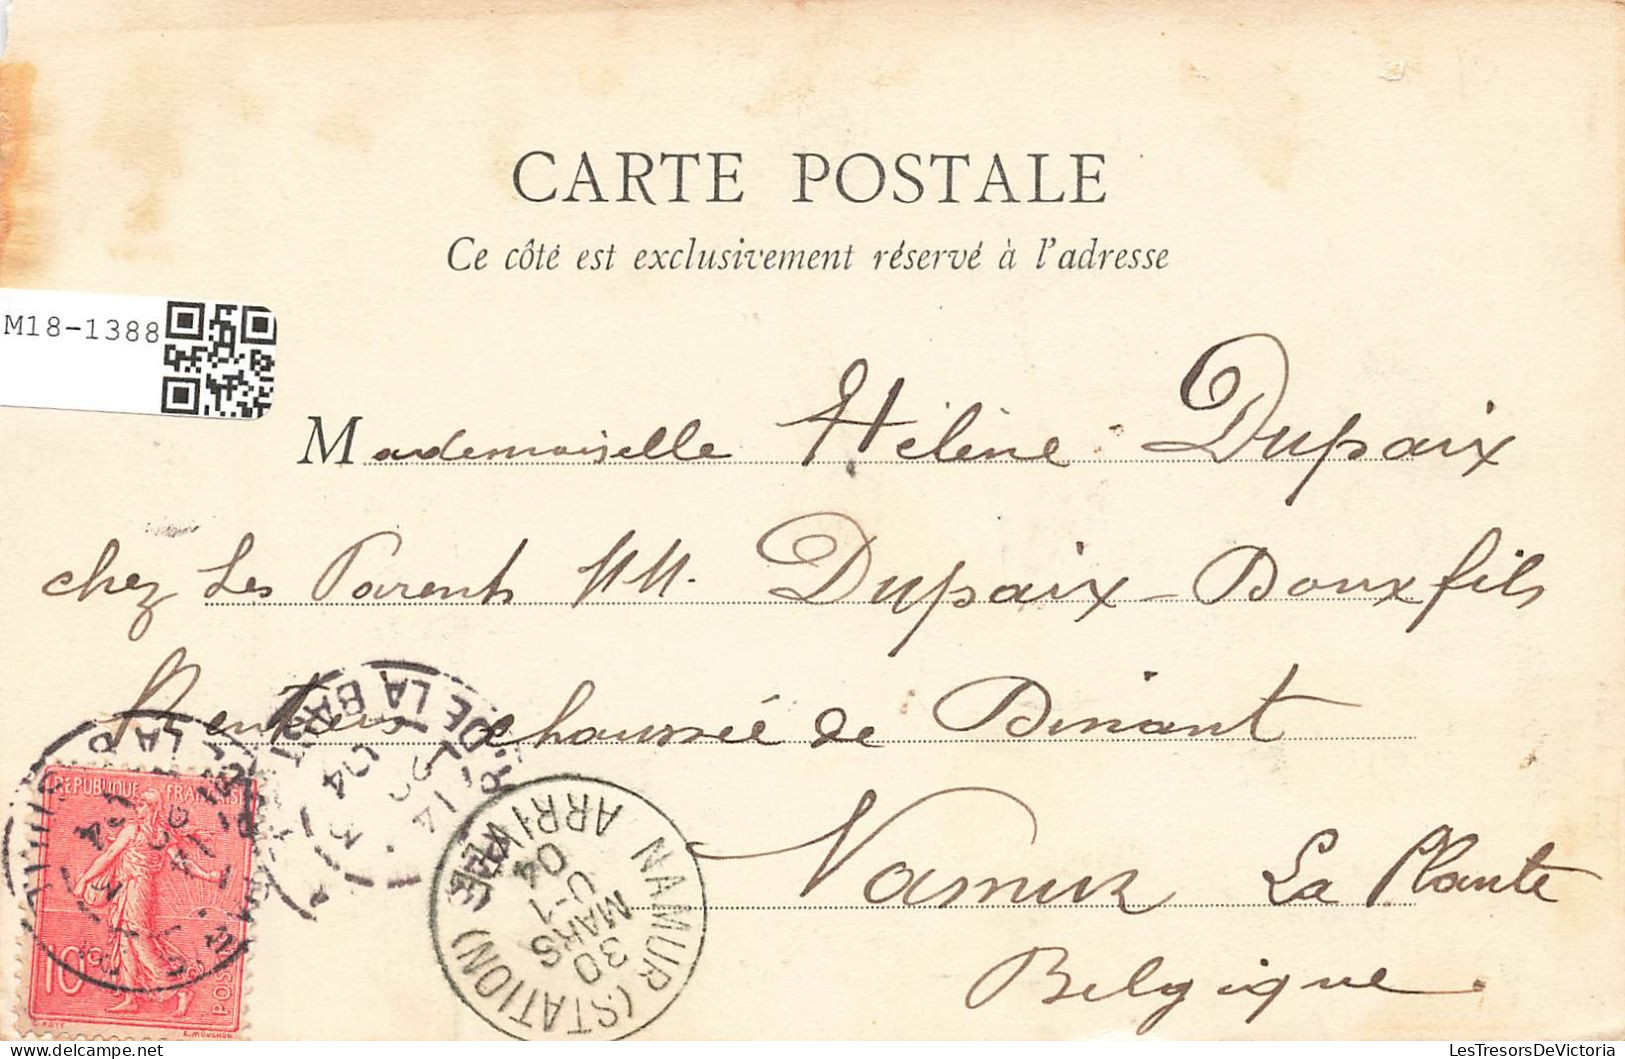 CARTE POSTALE
Ce côté est exclusivement réservé à l'adresse
M18-1388
Mademoiselle Hélène Dupaix
chez Les Parents MM. Dupaix-Bouxfils
Rentiers chaussée de Dinant
Namur La Plante
Belgique.
DE LA BAR
04
NAMUR (STATION)
ARRIVÉE
30
MARS
04
REPUBLIQUE FRANÇAISE
10c
POSTES
E. MOUCHON
delcampe.net
LesTresorsDeVictoria